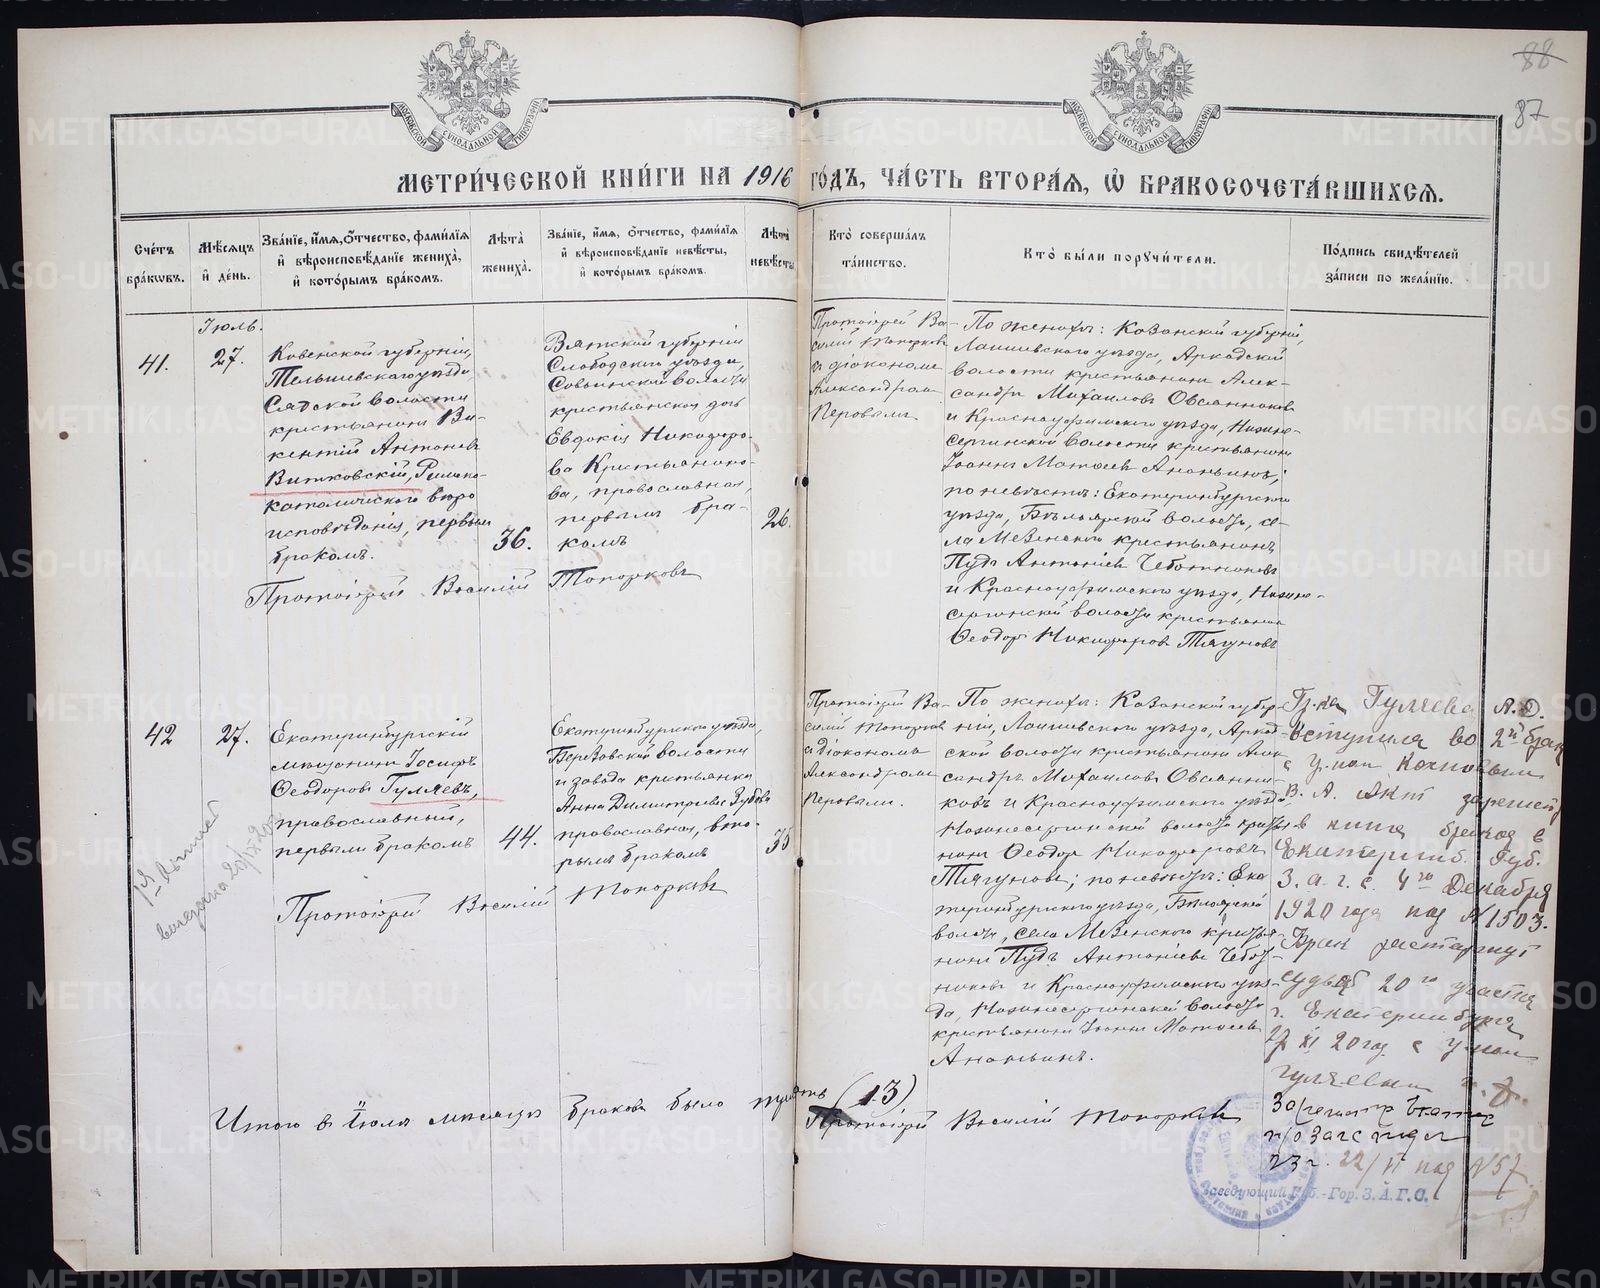 88
87
МОСКОВСКОЙ СѴНОДАЛЬНОЙ ТИПОГРАФІИ
МОСКОВСКОЙ СѴНОДАЛЬНОЙ ТИПОГРАФІИ
МЕТРИ́ЧЕСКОЙ КНИ́ГИ НА 1916 ГО́ДЪ, ЧА́СТЬ ВТОРА́Я, Ѽ БРАКОСОЧЕТА́ВШИХСЯ.
Сче́тъ бра́кωвъ.
Мѣ́сяцъ и҆ де́нь.
Зва́нїе, и҆́мя, ѻ҆́тчество, фами́лїя и҆ вѣроисповѣ́данїе жениха̀, и҆ кото́рымъ бра́комъ.
Лѣ́та жениха̀.
Зва́нїе, и҆́мя, ѻ҆́тчество, фами́лїя и҆ вѣроисповѣ́данїе невѣ́сты, и҆ кото́рымъ бра́комъ.
Лѣ́та невѣ́сты
Кто̀ соверша́лъ та́инство.
Кто̀ бы́ли порꙋчи́тели.
По́дпись свидѣ́телей за́писи по жела́нїю.
Іюль.
41.
27.
Ковенской губерніи,
Тельшевскаго уѣзда,
Сядской волости
крестьянинъ Ви-
кентій Антоневъ
Витковскій, Римско-
католическаго вѣро
исповѣданія, первым
бракомъ.
36.
Вятской губерніи
Слободского уѣзда,
волости
крестьянская дочь
Евдокія Никифоро-
ва Крестьянино-
ва, православная,
первымъ бра-
комъ
26.
Протоіерей Ва-
силій Топорковъ
и діакономъ
Александромъ
Перовымъ
По женихѣ: Казанской губерніи,
Лаишевскаго уѣзда,
волости крестьянинъ Алек-
сандръ Михаиловъ Овсянниковъ
и Красноуфимскаго уѣзда, Нижне-
сергинской волости крестьянинъ
Іоаннъ Матѳеевъ Ананьинъ;
по невѣстѣ: Екатеринбургскаго
уѣзда, Бѣлоярской волости, се-
ла Мезенскаго крестьянинъ
Пудъ Антоніевъ Чеботниковъ
и Красноуфимскаго уѣзда, Нижне-
сергинской волости крестьянинъ
Ѳеодоръ Никифоровъ Тягуновъ
Протоіерей Василій Топорковъ
42
27.
Екатеринбургскій
мѣщанинъ Іосифъ
Ѳеодоровъ Гуляевъ,
православный,
первымъ бракомъ
44.
Екатеринбургскаго уѣзда,
Березовской волости
и завода крестьянка
Анна Димитріева Зубова
православная, вто-
рымъ бракомъ
35
Протоіерей Ва-
силій Топорковъ
и діакономъ
Александромъ
Перовымъ.
По женихѣ: Казанской губер-
ніи, Лаишевскаго уѣзда,
ской волости крестьянинъ Алек
сандръ Михаиловъ Овсянни-
ковъ и Красноуфимскаго уѣзда
Нижнесергинской волости крестья-
нинъ Ѳеодоръ Никифоровъ
Тягуновъ; по невѣстѣ: Ека-
теринбургскаго уѣзда, Бѣлоярской
волости, села Мезенскаго крестья-
нинъ Пудъ Антоніевъ Чебот-
никовъ и Красноуфимскаго уѣз-
да, Нижнесергинской волости
крестьянинъ Іоаннъ Матѳеевъ
Ананьинъ.
Гр-ка Гуляева А. Д.
вступила во 2й брак
с гр-ном
В. А. Акт зарегист
в книге браков в
Екатеринб. Губ.
З. а. г. с. 4го Декабря
1920 года под №1503.
Брак расторгнут
судьей 20го участка
г. Екатеринбурга
XI 20 год с гр-ном
Гуляевым
под №57
Протоіерей Василій Топорковъ
Итого въ Іюлѣ мѣсяцѣ браковъ было тринадцать (13)
Протоіерей Василій Топорковъ
Заведующий Губ.-Гор. З.А.Г.С.
METRIKI.GASO-URAL.RU